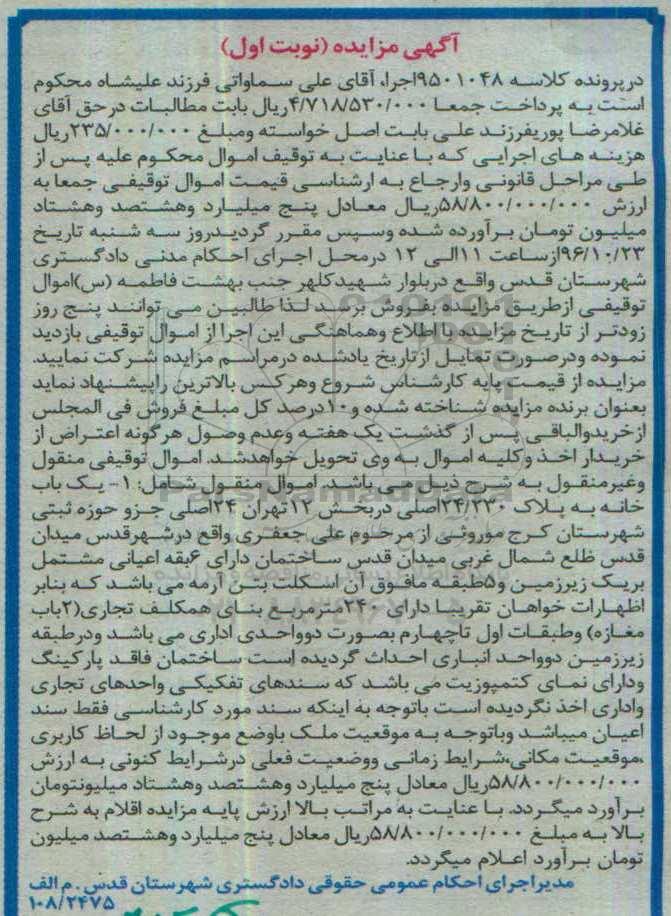 آگهی مزایده (نوبت اول)
درپرونده کلاسه ۹۵۰۱۰۴۸اجرا، آقای علی سماواتی فرزند علیشاه محکوم
است به پرداخت جمعا ۴/۷۱۸/۵۳۰/۰۰۰ریال بابت مطالبات درحق آقای
غلامرضا پوریفرزند علی بابت اصل خواسته ومبلغ ۲۳۵/۰۰۰/۰۰۰ریال
هزینه های اجرایی که با عنایت به توقیف اموال محکوم علیه پس از
طی مراحل قانونی وارجاع به ارشناسی قیمت اموال توقیفی جمعا به
ارزش ۵۸/۸۰۰/۰۰۰/۰۰۰ریال معادل پنج میلیارد وهشتصد وهشتاد
میلیون تومان برآورده شده وسپس مقرر گردیدروز سه شنبه تاریخ
۹۶/۱۰/۲۳ازساعت ۱۱الی ۱۲ درمحل اجرای احکام مدنی دادگستری
شهرستان قدس واقع دربلوار شهیدکلهر جنب بهشت فاطمه (س)اموال
توقیفی ازطریق مزایده بفروش برسد لذا طالبین می توانند پنج روز
زودتر از تاریخ مزایده با اطلاع وهماهنگی این اجرا از اموال توقیفی بازدید
نموده ودرصورت تمایل ازتاریخ یادشده درمراسم مزایده شرکت نمایید.
مزایده از قیمت پایه کارشناس شروع وهرکس بالاترین راپیشنهاد نماید
بعنوان برنده مزایده شناخته شده و۱۰درصد کل مبلغ فروش فی المجلس
ازخریدوالباقی پس از گذشت یک هفته وعدم وصول هرگونه اعتراض از
خریدار اخذ وکلیه اموال به وی تحویل خواهدشد. اموال توقیفی منقول
وغیرمنقول به شرح ذیل می باشد. اموال منقول شامل: ۱- یک باب
خانه به پلاک ۲۴/۲۳۰اصلی دربخش ۱۲تهران ۲۴اصلی جزو حوزه ثبتی
شهرستان کرج موروثی از مرحوم علی جعفری واقع درشهرقدس میدان
قدس ظلع شمال غربی میدان قدس ساختمان دارای ۶بقه اعیانی مشتمل
بریک زیرزمین و۵طبقه مافوق آن اسکلت بتن آرمه می باشد که بنابر
اظهارات خواهان تقریبا دارای ۲۴۰مترمربع بنای همکلف تجاری(۲باب
مغازه) وطبقات اول تاچهارم بصورت دوواحدی اداری می باشد ودرطبقه
زیرزمین دوواحد انباری احداث گردیده است ساختمان فاقد پارکینگ
ودارای نمای کتمپوزیت می باشد که سندهای تفکیکی واحدهای تجاری
واداری اخذ نگردیده است باتوجه به اینکه سند مورد کارشناسی فقط سند
اعیان میباشد وباتوجه به موقعیت ملک باوضع موجود از لحاظ کاربری
،موقعیت مکانی،شرایط زمانی ووضعیت فعلی درشرایط کنونی به ارزش
۵۸/۸۰۰/۰۰۰/۰۰۰ریال معادل پنج میلیارد وهشتصد وهشتاد میلیونتومان
برآورد میگردد. با عنایت به مراتب بالا ارزش پایه مزایده اقلام به شرح
بالا به مبلغ ۵۸/۸۰۰/۰۰۰/۰۰۰ریال معادل پنج میلیارد وهشتصد میلیون
تومان برآورد اعلام میگردد.
مدیراجرای احکام عمومی حقوقی دادگستری شهرستان قدس . م الف
۱۰۸/۲۴۷۵